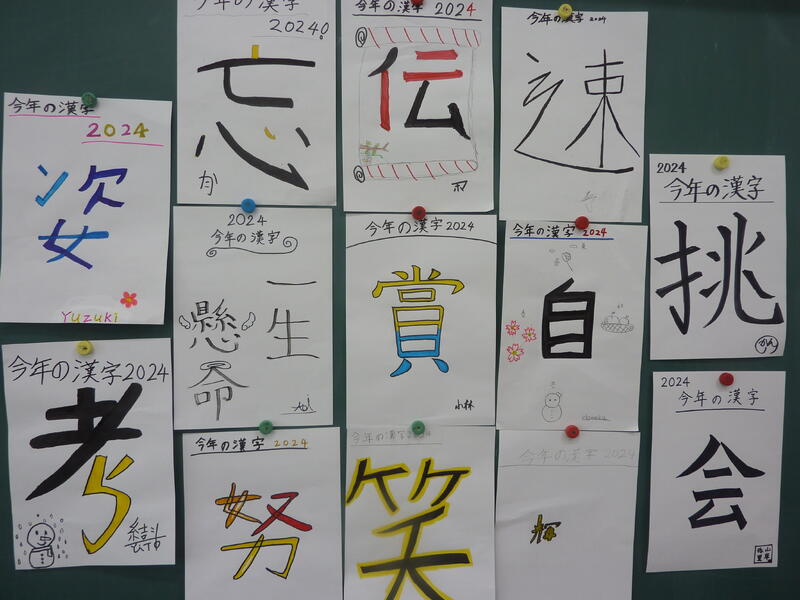 今年の漢字
2024
姿
Yuzuki
今年の漢字2024
考
結斗
今年の漢字
2024!
忘
2024
今年の漢字
一生
懸命
今年の漢字 2024
努
今年の漢字 2024
伝
今年の漢字2024
賞
小林
今年の漢字2024
笑
今年の漢字 2024
速
今年の漢字 2024
自
今年の漢字 2024
輝
2024
今年の漢字
挑
2024
今年の漢字
会